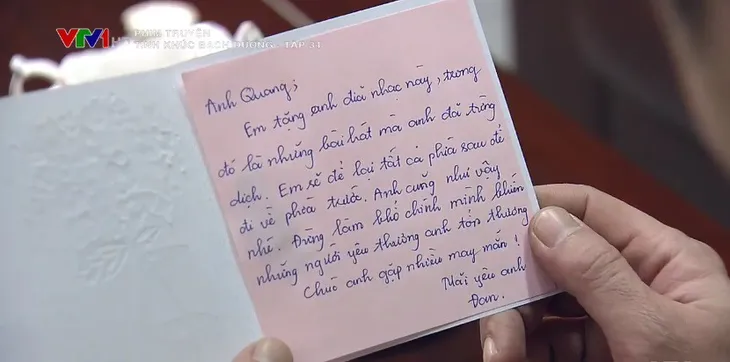 VTV1 HD
PHIM TRUYỆN
TÌNH KHÚC BẠCH DƯƠNG - TẬP 31
Anh Quang;
Em tặng anh đĩa nhạc này, trong
đó là những bài hát mà anh đã từng
dịch. Em sẽ để lại tất cả phía sau để
đi về phía trước. Anh cũng như vậy
nhé. Đừng làm khổ chính mình khiến
những người yêu thương anh tổn thương
Chúc anh gặp nhiều may mắn!
Mãi yêu anh
Đan.